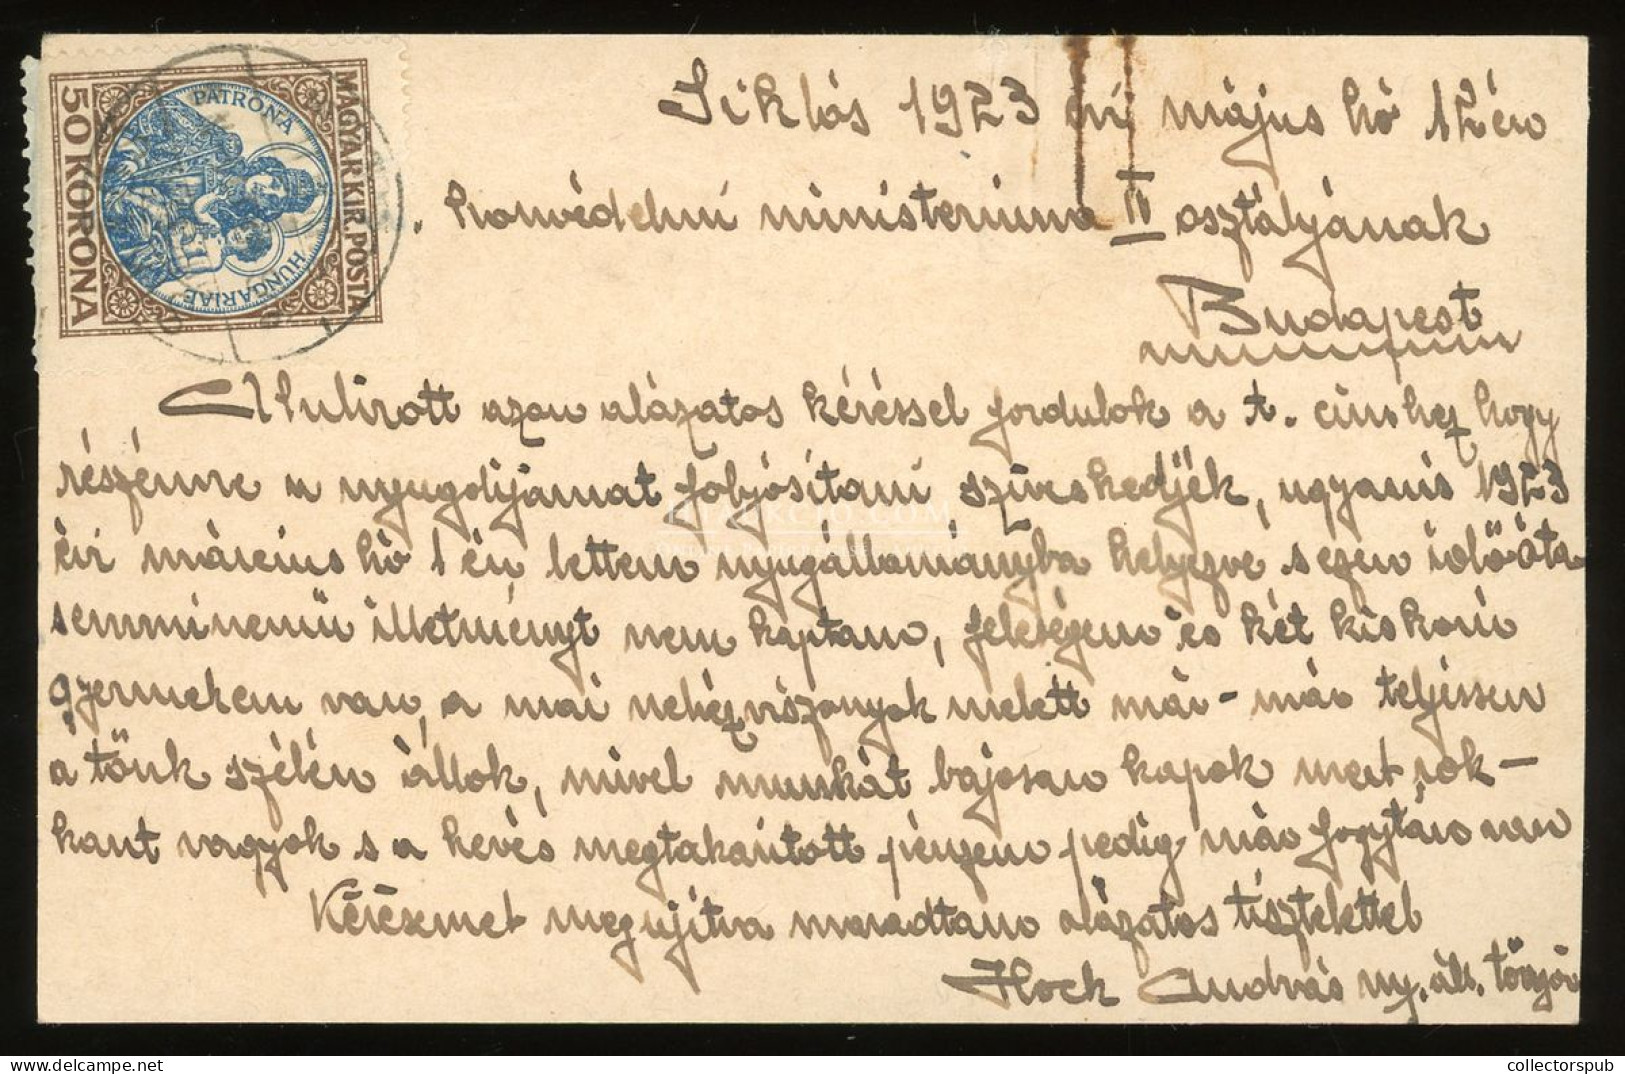 MAGYAR KIR. POSTA
50 KORONA
PATRONA
HUNGARIAE
Siklós 1923 évi május hó 12én
honvédelmi ministerium osztályának
Budapest
Alulirott azon alázatos kéréssel fordulok a t. cimhez hogy
részemre a nyugdijamat folyósitani sziveskedjék, ugyanis 1923
évi március hó 1én lettem nyugállományba helyezve s ezen idő óta
semminemü illetményt nem kaptam, feleségem és két kiskorú
gyermekem van, a mai nehéz viszonyok melett már-már teljessen
a tönk szélén állok, mivel munkát bajosan kapok mert rok-
kant vagyok s a kevés megtakaritott pénzem pedig már fogytán van
Kérésemet megujitva maradtam alázatos tisztelettel
Hock András ny. áls. törzsőr
collectorspub